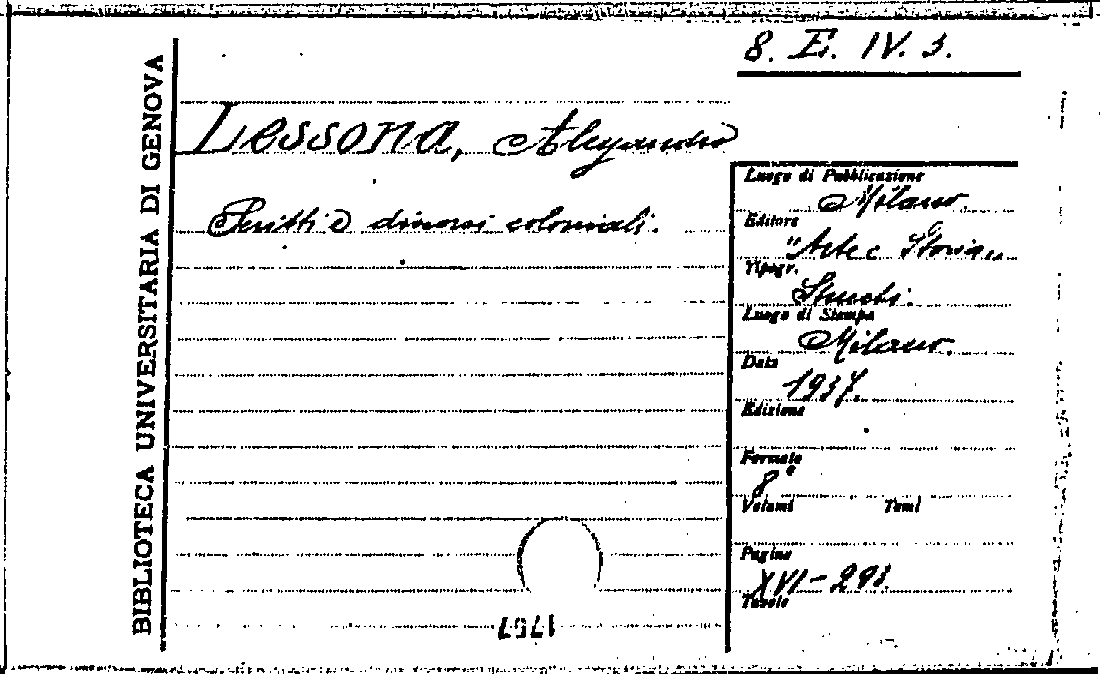 8. E. IV. 3.
BIBLIOTECA UNIVERSITARIA DI GENOVA
Lessona, Alessandro
Scritti e discorsi coloniali.
Luogo di Pubblicazione
Milano.
Editore
"Arte e Storia"
Tipogr.
Stucchi.
Luogo di Stampa
Milano.
Data
1937.
Edizione
Formato
8°
Volumi Tomi
Pagine
XVI-293.
Tavole
1757